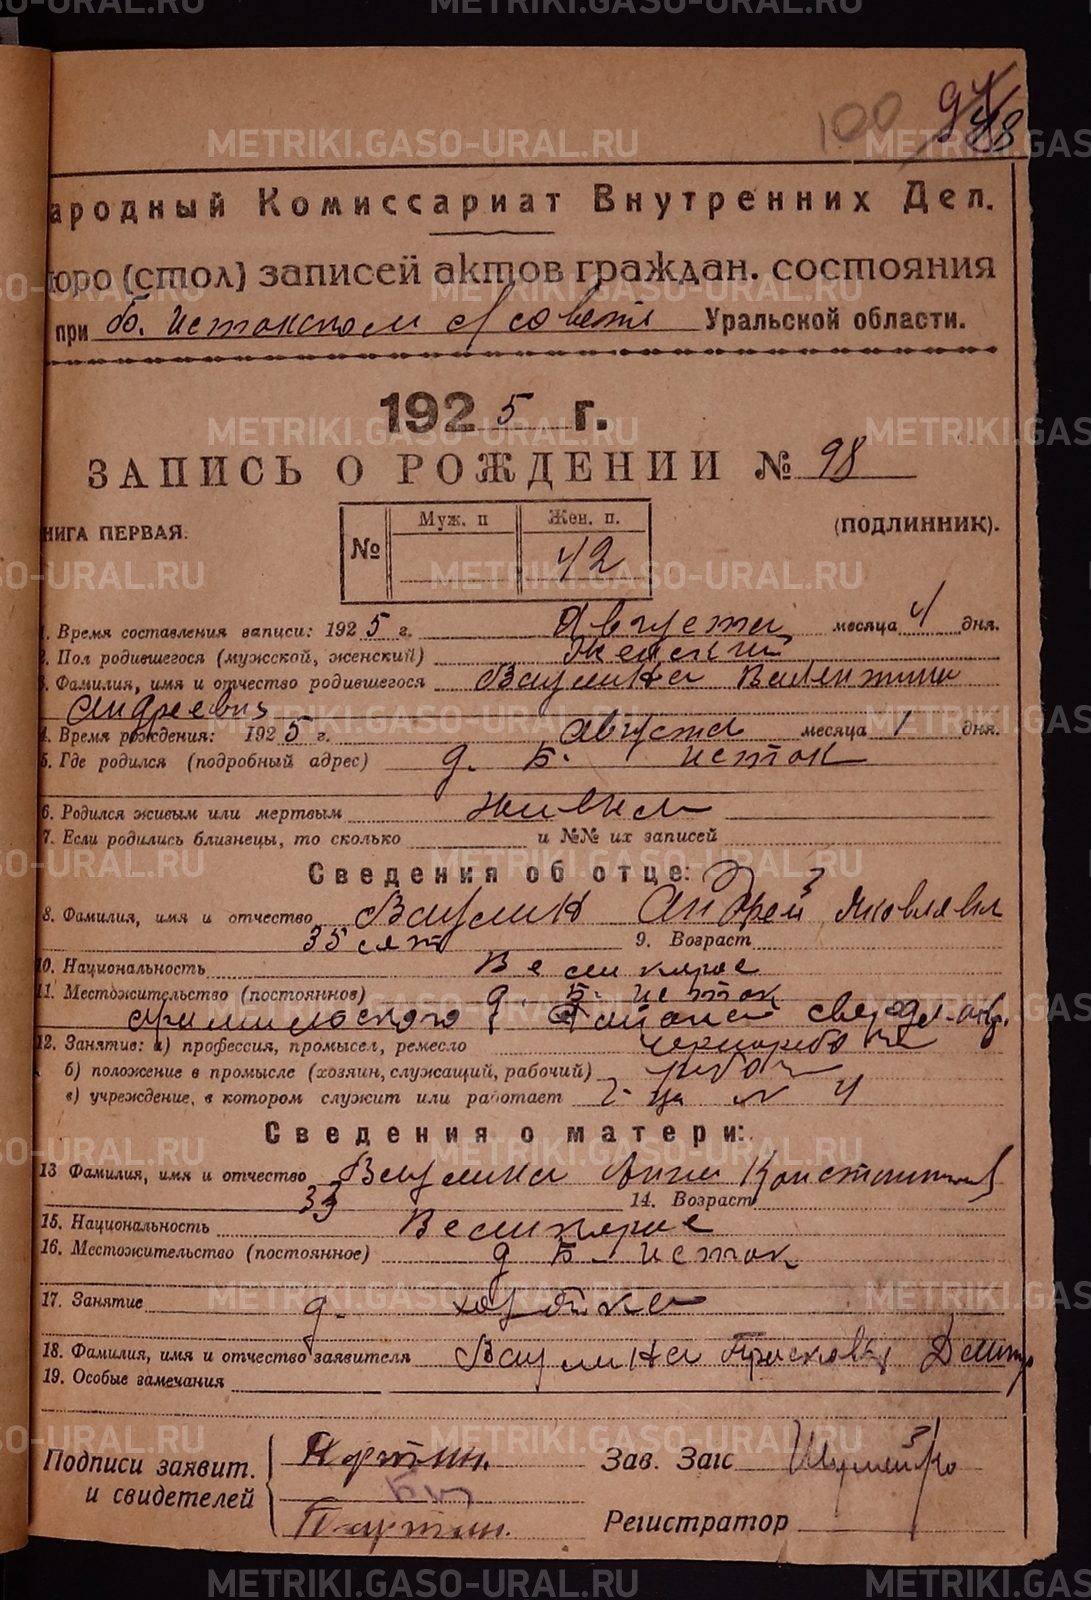 100 98
ародный Комиссариат Внутренних Дел.
юро (стол) записей актов граждан. состояния
при Б. Истокском с/совете Уральской области.
1925 г.
ЗАПИСЬ О РОЖДЕНИИ № 98
НИГА ПЕРВАЯ. (ПОДЛИННИК).
№ Муж. п Жен. п.
42
1. Время составления записи: 1925 г. Августа месяца 4 дня.
2. Пол родившегося (мужской, женский) Женский
3. Фамилия, имя и отчество родившегося Ваулина Валентина
Андреевна
4. Время рождения: 1925 г. августа месяца 1 дня.
5. Где родился (подробный адрес) д. Б. Исток
6. Родился живым или мертвым живым
7. Если родились близнецы, то сколько и №№ их записей
Сведения об отце:
8. Фамилия, имя и отчество Ваулин Андрей Яковлевич
35 лет 9. Возраст
10. Национальность Великорос
11. Местожительство (постоянное) д. Б. Исток
Арамильского района Свердл. окр.
12. Занятие: а) профессия, промысел, ремесло чернорабочие
б) положение в промысле (хозяин, служащий, рабочий) рабоч
в) учреждение, в котором служит или работает
Сведения о матери:
13 Фамилия, имя и отчество Ваулина Анна Константинов
33 14. Возраст
15. Национальность Великорос
16. Местожительство (постоянное) д Б. Исток
17. Занятие д. хозяйка
18. Фамилия, имя и отчество заявителя Ваулина Прасковья Дмитр
19. Особые замечания
Подписи заявит. и свидетелей
Зав. Загс
Регистратор
METRIKI.GASO-URAL.RU